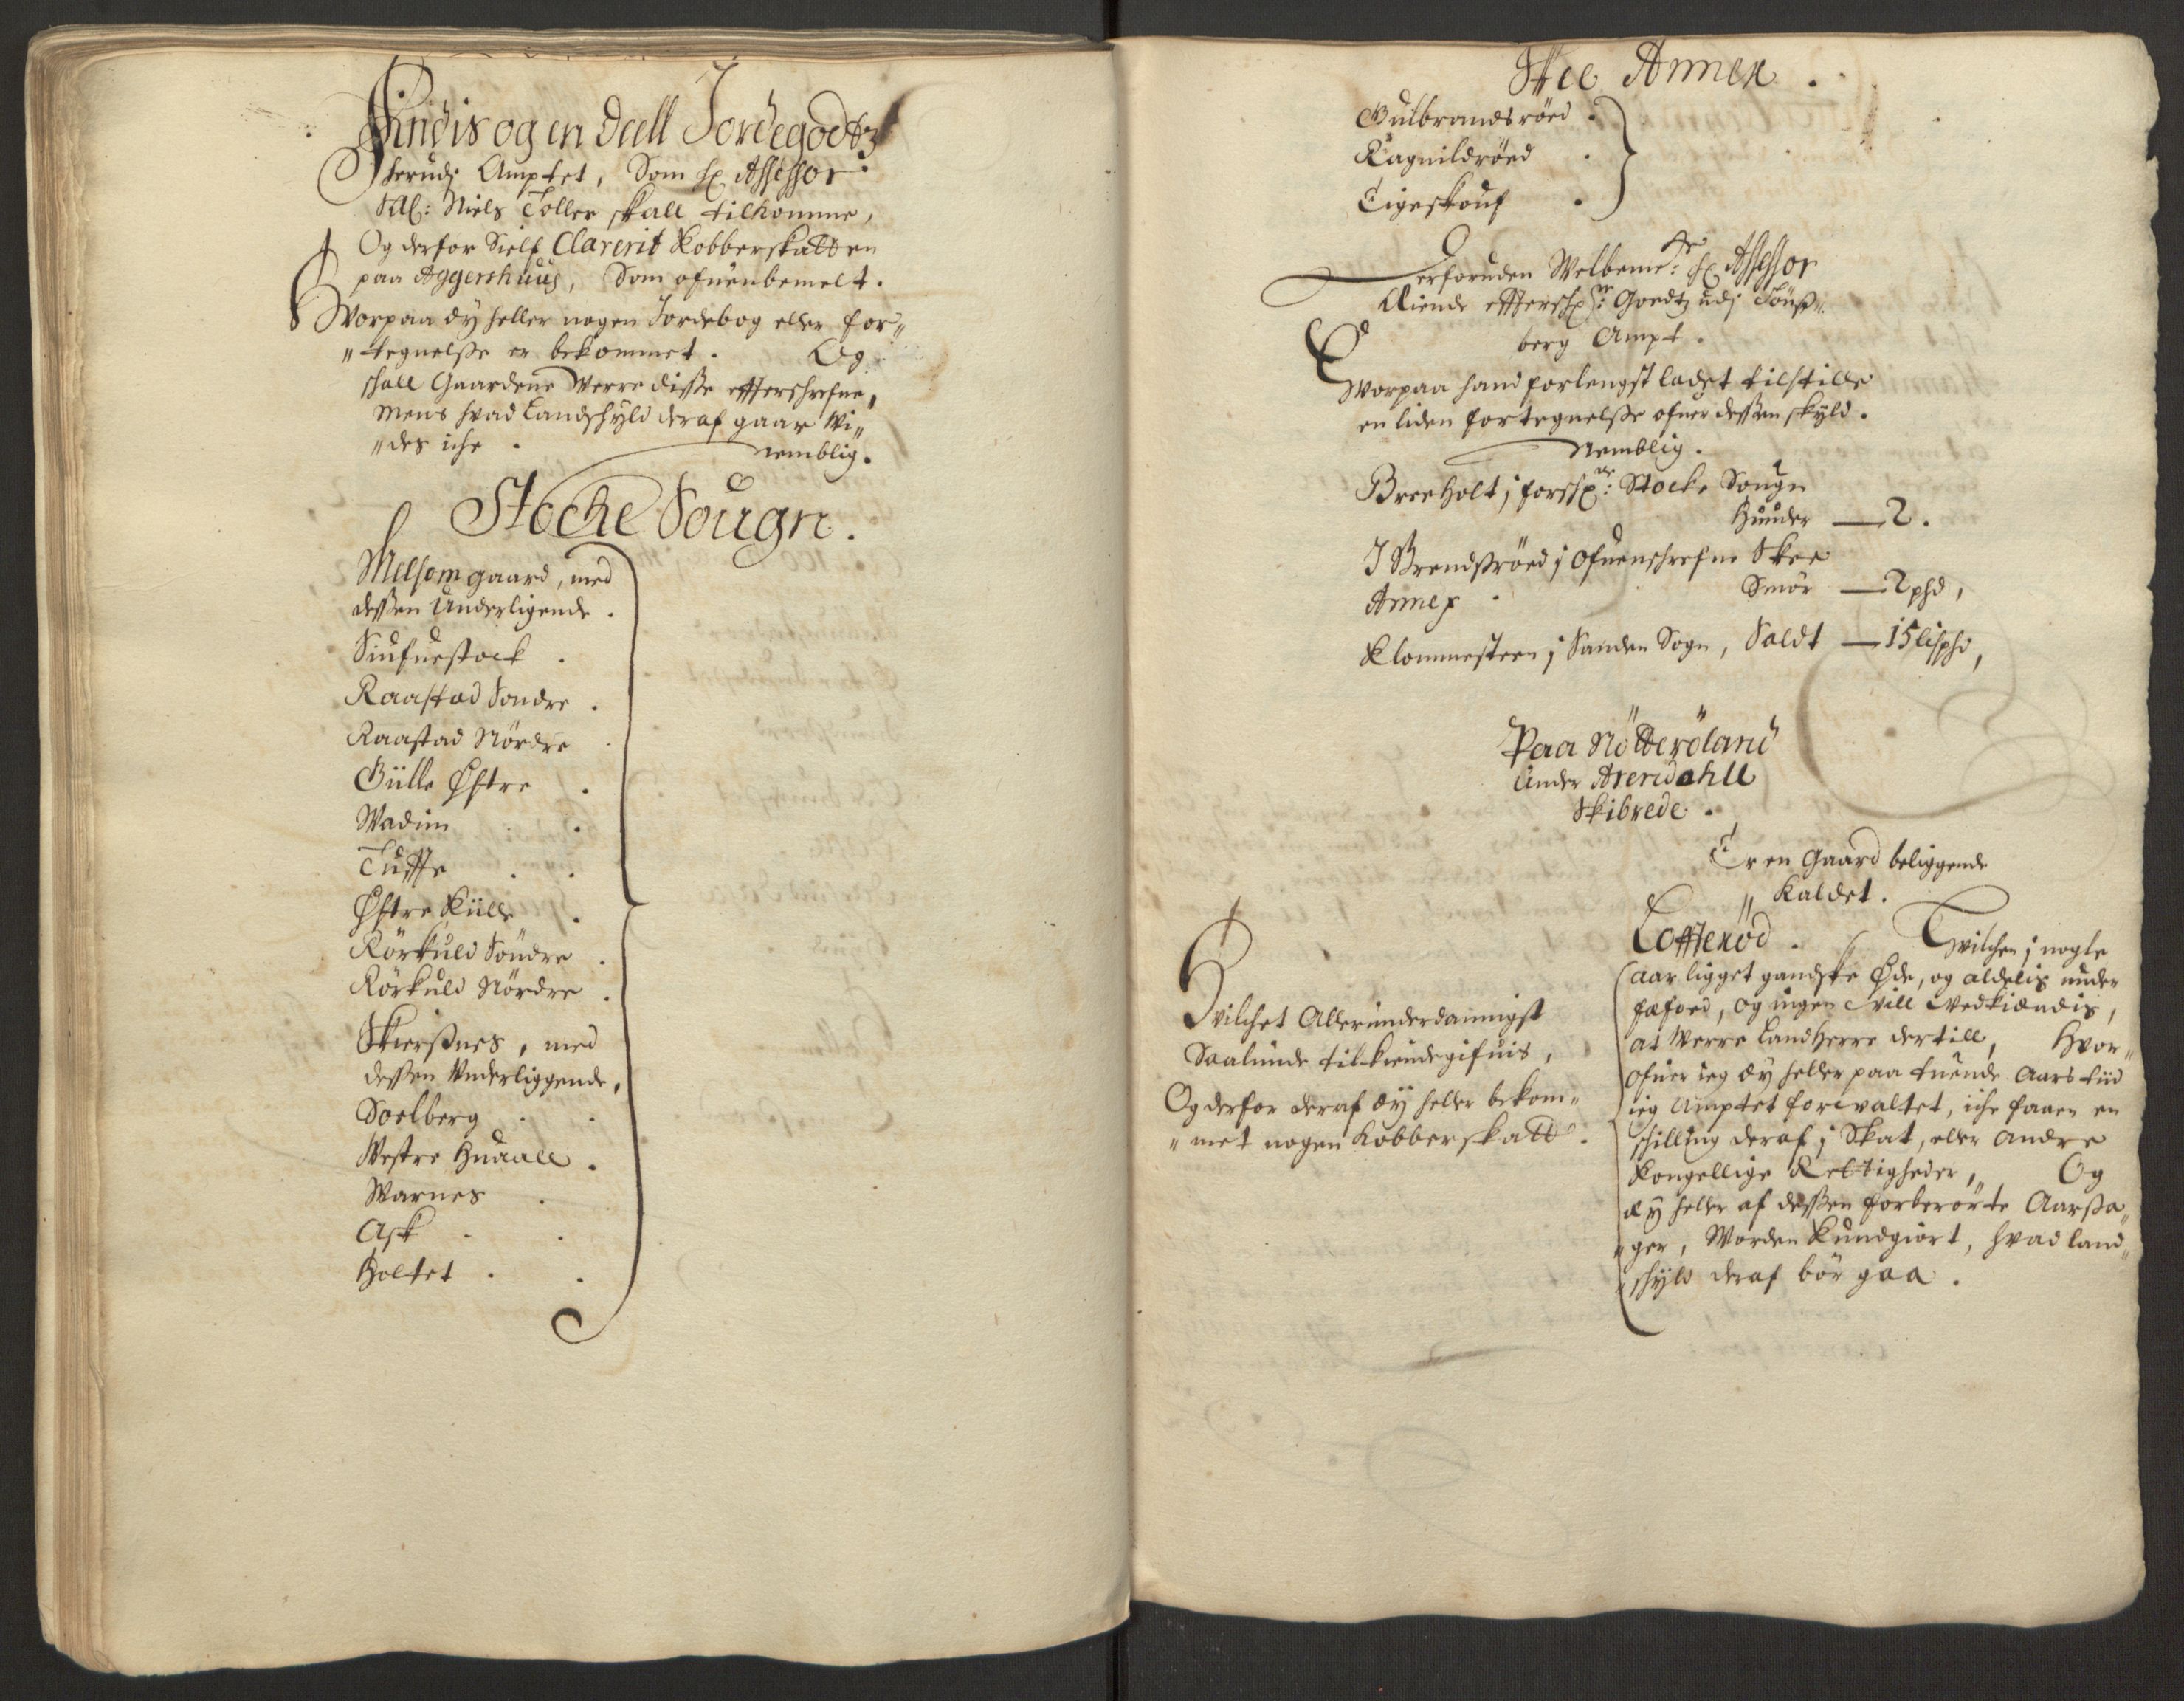 Findis og en deell Jordegodtz
herudj Amptet, Som hr Assessor
Sal: Niels Toller skall tilkomme,
Og derfor Sielf Clarerit Kobberskatten
paa Aggershuus, Som ofuenbemelt.
Hvorpaa ey heller nogen Jordebog eller for„
„tegnelsse er bekommet. Og
schall Gaardene Werre disse effterschrefne,
Mens hvad Landschyld deraf gaar Wi„
„des iche. Nemblig.
Stocke Sougn.
Melsom gaard, med
dessen Underligende.
Siufuestock.
Raastad Sondre.
Raastad Nördre
Gülle Østre.
Wadim.
Tuffte.
Østre Külle.
Rörkuld Söndre.
Rörkuld Nördre.
Skierssnes, med
dessen Underliggende,
Soelberg.
Westre Huaall.
Warnes.
Ask.
Holtet.
Skee Annex.
Gulbrandsröed.
Ragnildröed.
Eigeskouf.
Derforuden Welbemte: hr Assessor
Eiende effterschrne: Goedtz udj Tönss„
berg Ampt.
Hvorpaa hand forlengst ladet tilstille
en liden fortegnelsse ofuer dessen skyld.
Nemblig.
Breeholt j forschrne: Stocke Sougn
Huuder — 2.
J Brendsröed j Ofuenschrefne Skee
Annex. Smör — 2 phd,
Klommesteen j Sanden Sogn, Saldt — 15 lisphd,
Paa Nötteröland
Under Arendahll
Skibrede.
Er en Gaard beliggende
„ Kaldet.
Loffteröd. Hvilchen j nogle
Aar ligget gandske Øde, og aldelis under
fæfoed, og ingen Vill Vedkiendis,
at Werre LandHerre dertill, Hvor„
ofuer ieg ey heller paa tuende Aars tiid
ieg Amptet forvaltet, iche faaen en
schilling deraf j Skat, eller Andre
Kongellige Rettigheder, Og
ey heller af dessen forberörte Aarssa„
„ger, Worden Kundgiort, hvad land„
„schyld deraf bör gaa.
Hvilchet Allerunderdannigst
Saalunde tilkiendegifuis,
Og derfor deraf ey heller bekom„
„met nogen Kobberskatt.